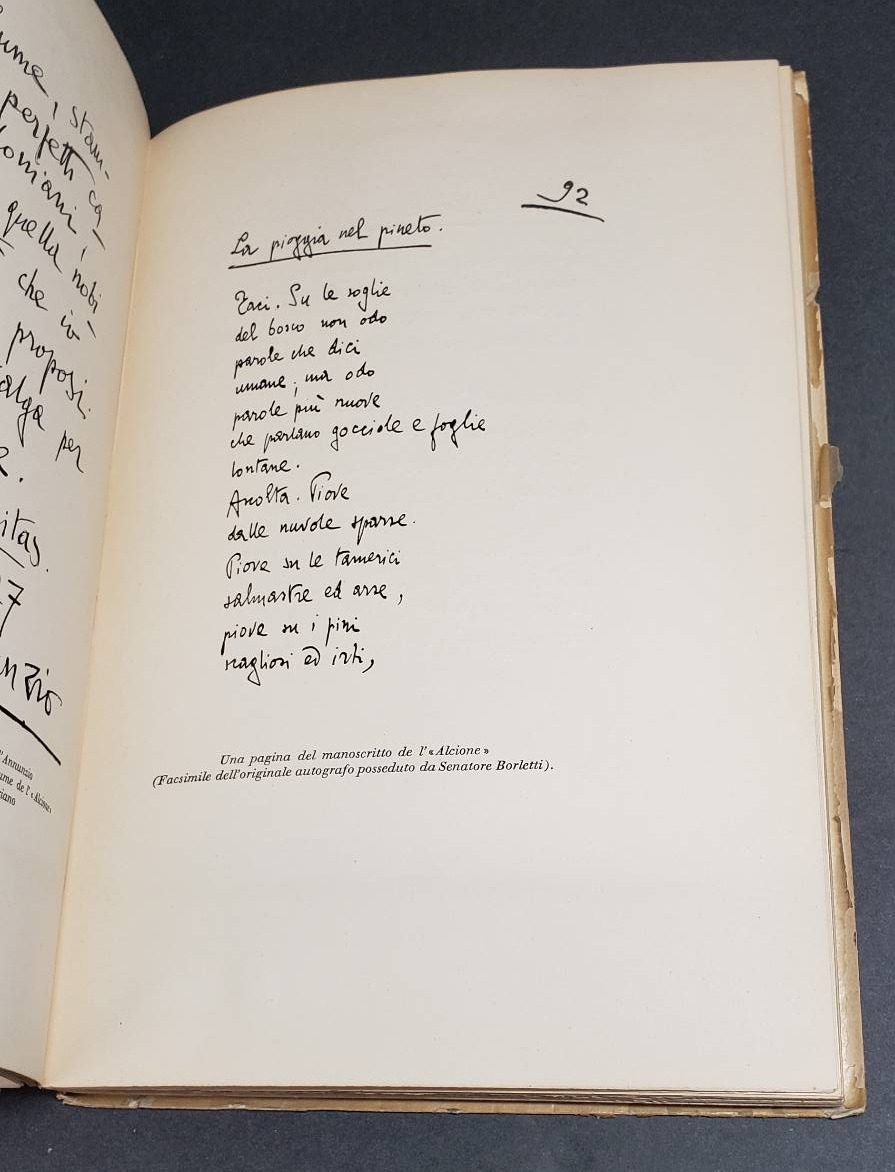 ume, stam-
perfetti ca-
oniani,
quella nobi-
che io
proposi.
alga per
itas.
7
nzio
d'Annunzio
ume de l'«Alcione»
iano
92
La pioggia nel pineto.
Taci. Su le soglie
del bosco non odo
parole che dici
umane; ma odo
parole più nuove
che parlano gocciole e foglie
lontane.
Ascolta. Piove
dalle nuvole sparse.
Piove su le tamerici
salmastre ed arse,
piove su i pini
scagliosi ed irti,
Una pagina del manoscritto de l'«Alcione»
(Facsimile dell'originale autografo posseduto da Senatore Borletti).